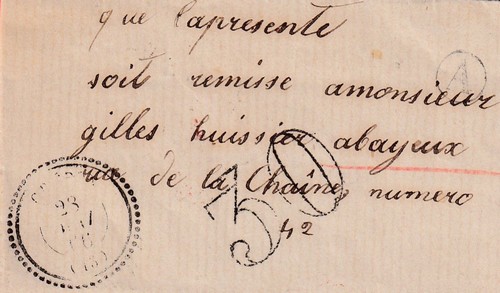 que lapresente
soit remisse amonsieur
A
gilles huissier abayeux
rue de la Chaîne numero
42
30
23
(13)